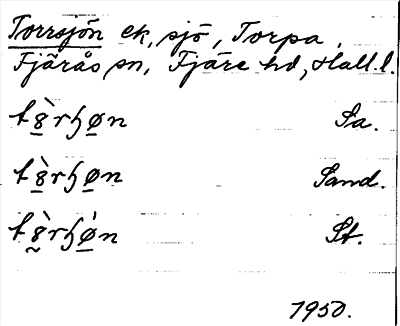 Torrsjön ek, sjö, Torpa,
Fjärås sn, Fjäre hd, Hall. l.
Sa.
Sand.
St.
1950.